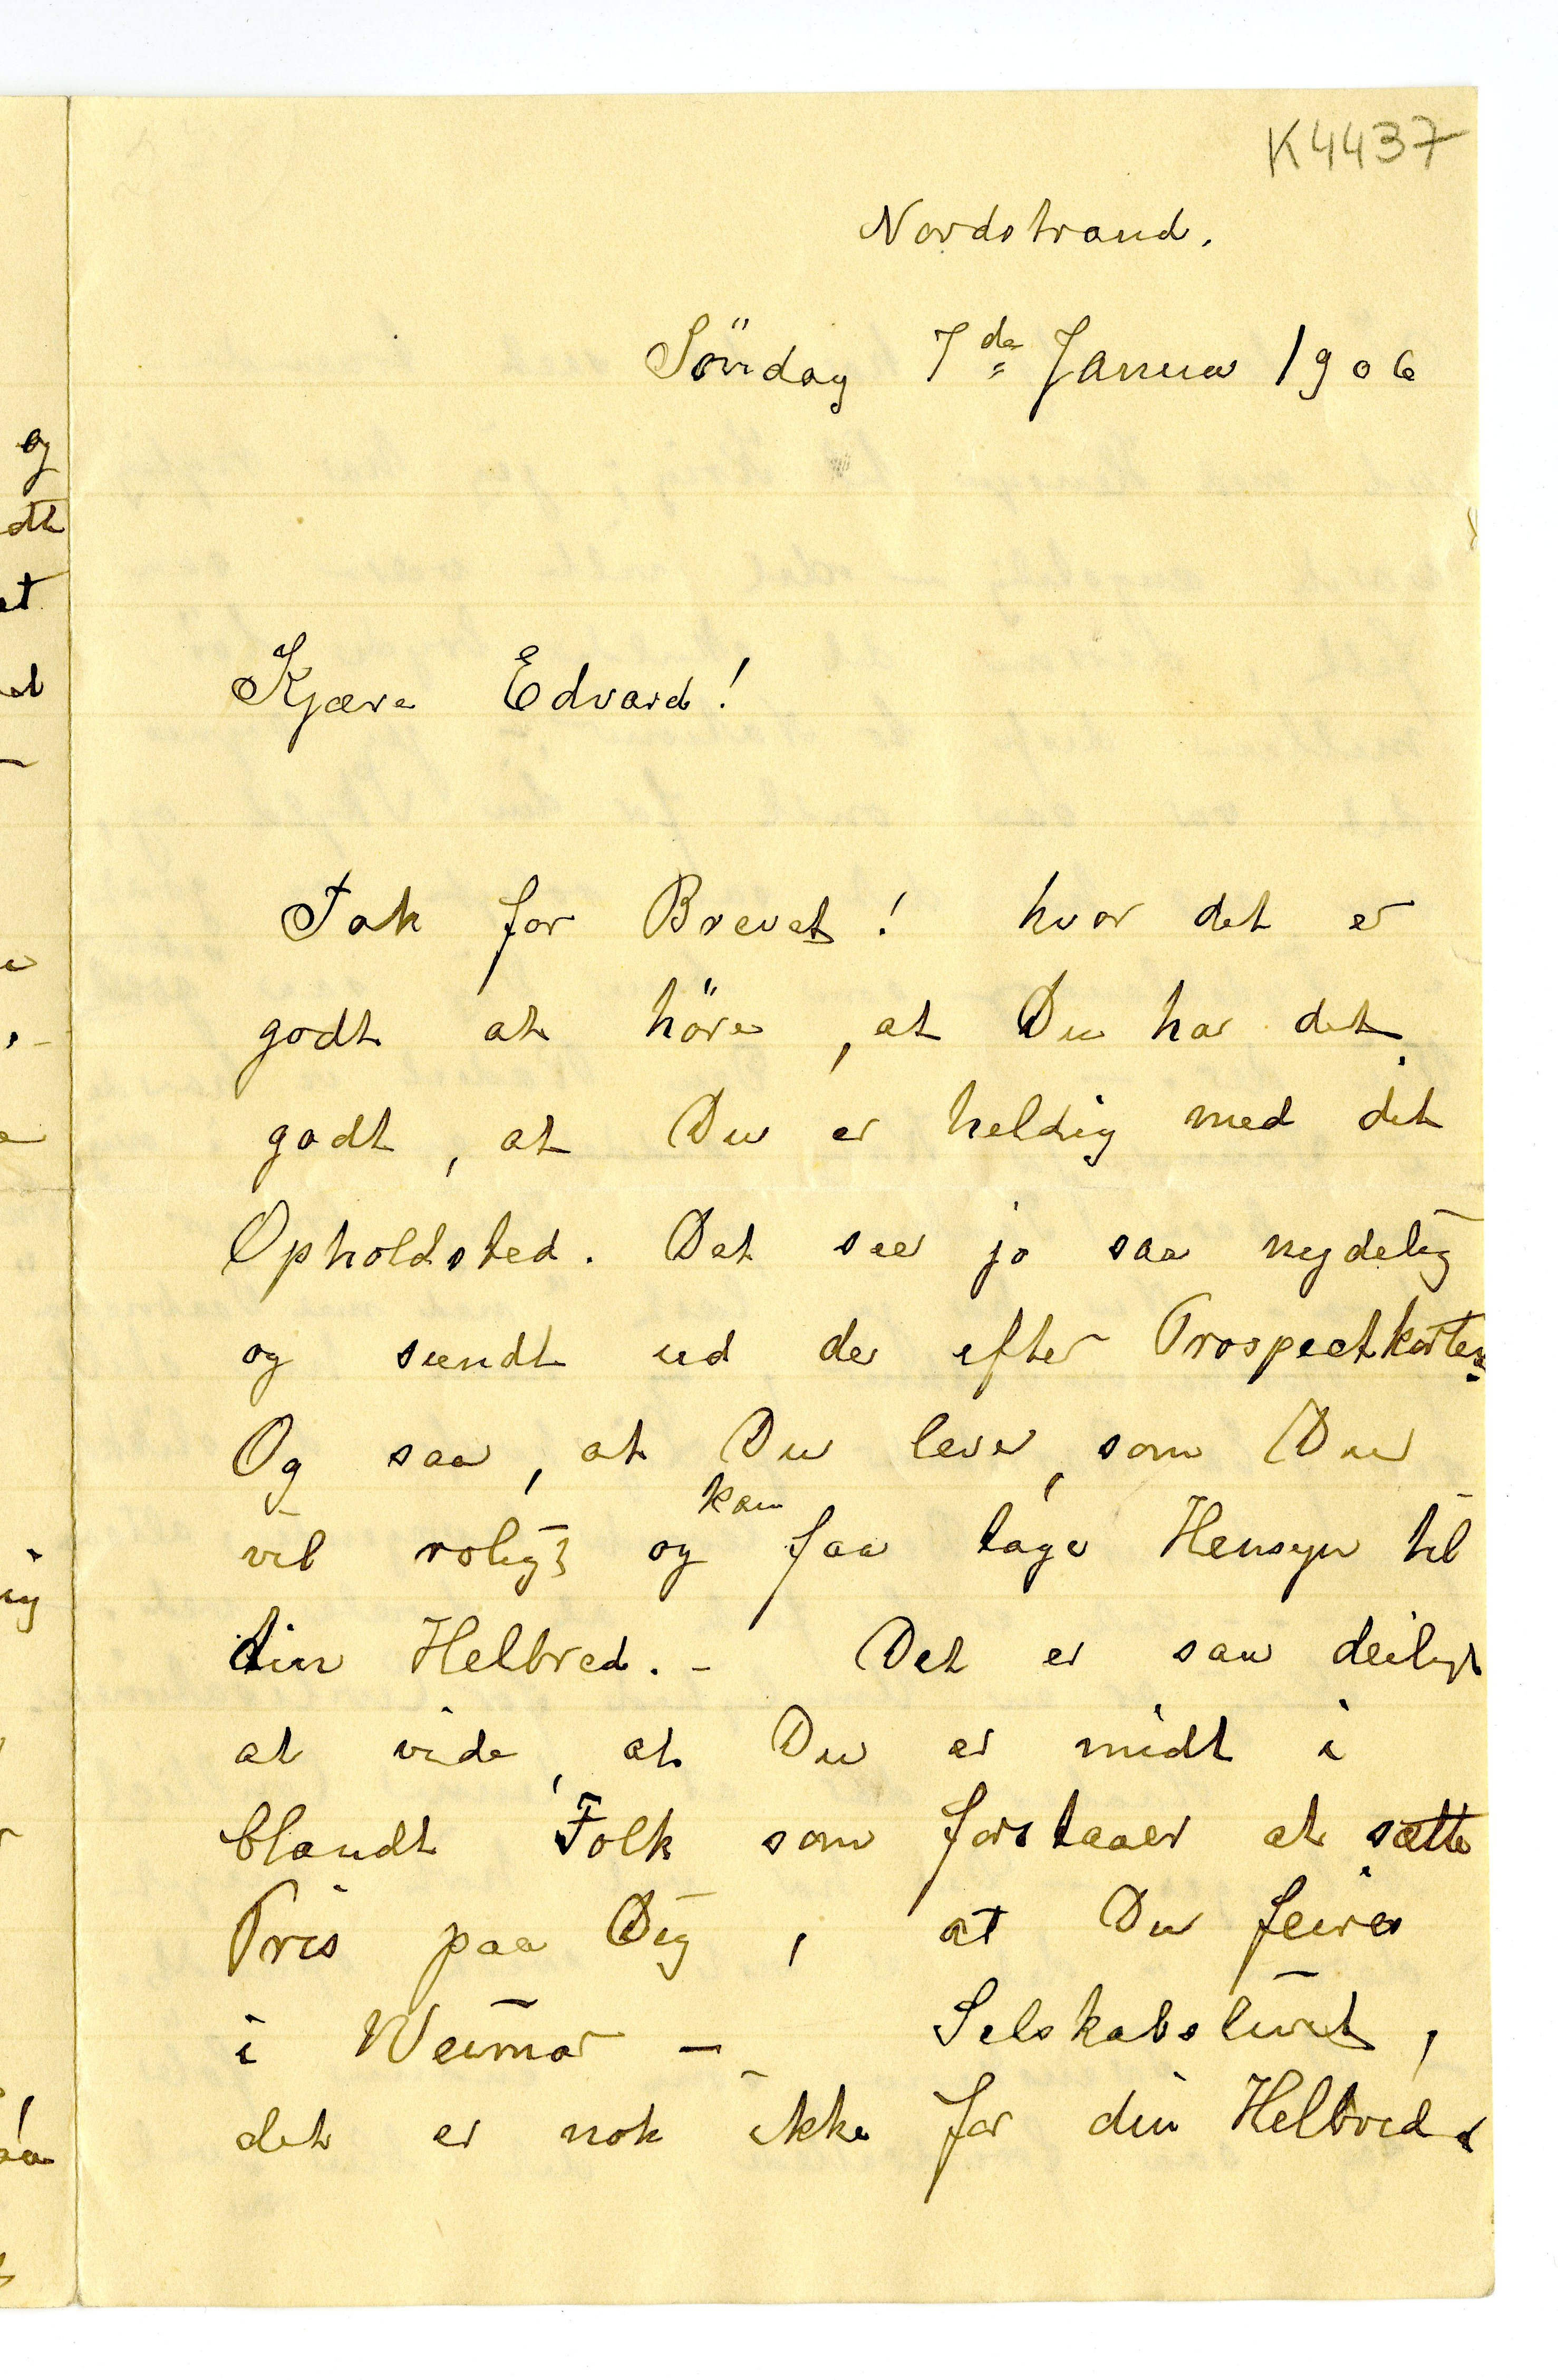 K4437
Nordstrand.
Söndag 7de Januar 1906
Kjære Edvard!
Tak for Brevet! hvor det er
godt at höre, at Du har det
godt, at Du er heldig med dit
Opholdsted. Det seer jo saa nydelig
og sundt ud der efter Prospectkorten.
Og saa, at Du lever, som Du
vil roligt og kan faa tage Hensyn til
din Helbred. – Det er saa deiligt
at vide, at Du er midt i
blandt Folk som forstaaer at sætte
Pris paa Dig, at Du feires
i Weimar – Selskabslivet,
det er nok ikke for din Helbred
og
dt
et